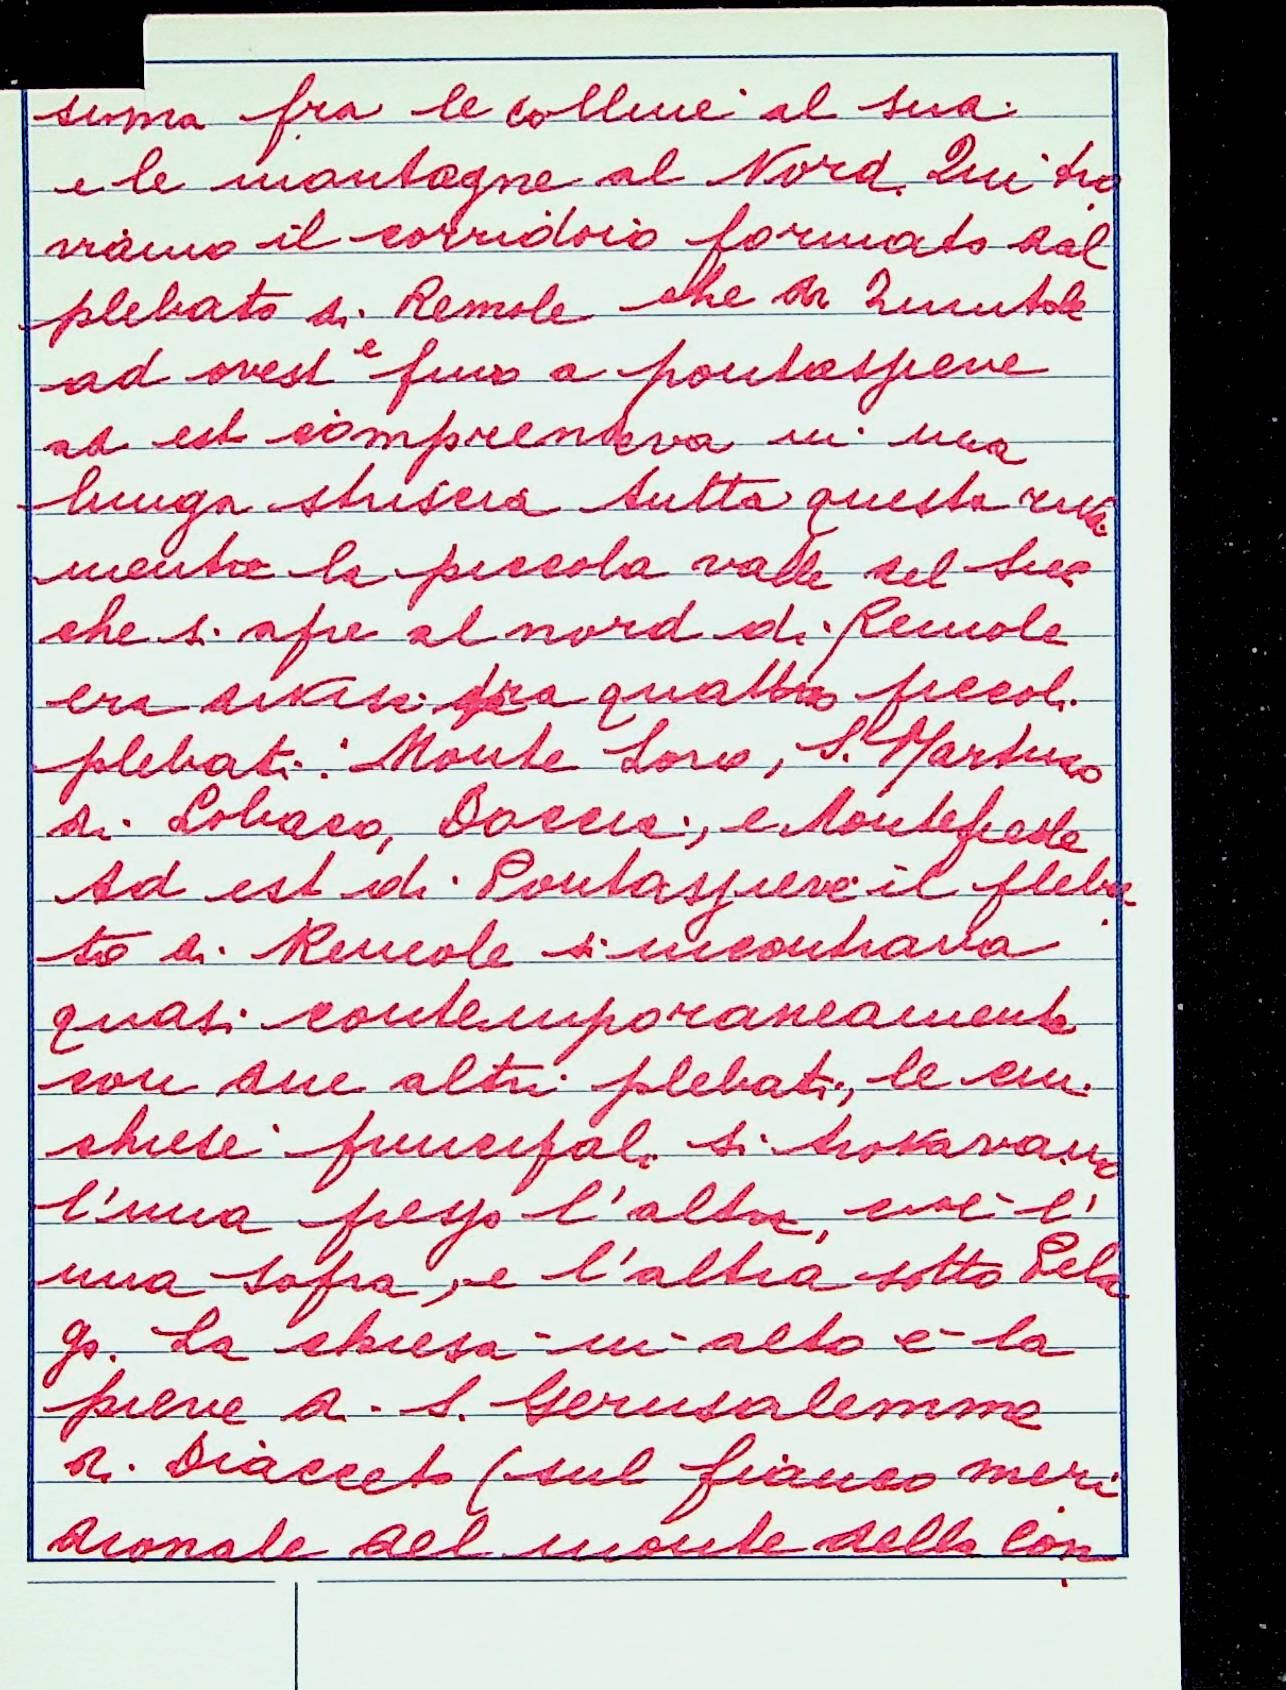 suma fra le colline al sud
e le montagne al Nord. Qui tro
viamo il corridoio formato dal
plebato di Remole che da Quintole
ad ovest e fino a pontassieve
ad est comprendeva in una
lunga striscia tutta questa riva
mentre la piccola valle del
che si apre al nord di Remole
era divisa fra quattro piccoli
plebati: Monte Loro, S. Martino
di Lobaco, Doccia, e Montefiesole
Ad est di Pontassieve il pleba
to di Remole si incontrava
quasi contemporaneamente
con due altri plebati, le cui
chiese principali si trovavano
l'una presso l'altra, cioè l'
una sopra, e l'altra sotto Pela
go. La chiesa in alto è la
pieve di S. Gerusalemme
di Diacceto (sul fianco meri
dionale del monte della Con